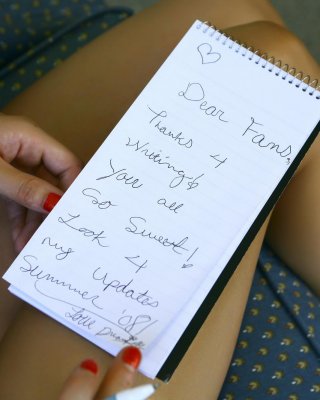 Dear Fans,
Thanks 4
Writing!
You all
So Sweet!
Look 4
my updates
Summer '08!
Love